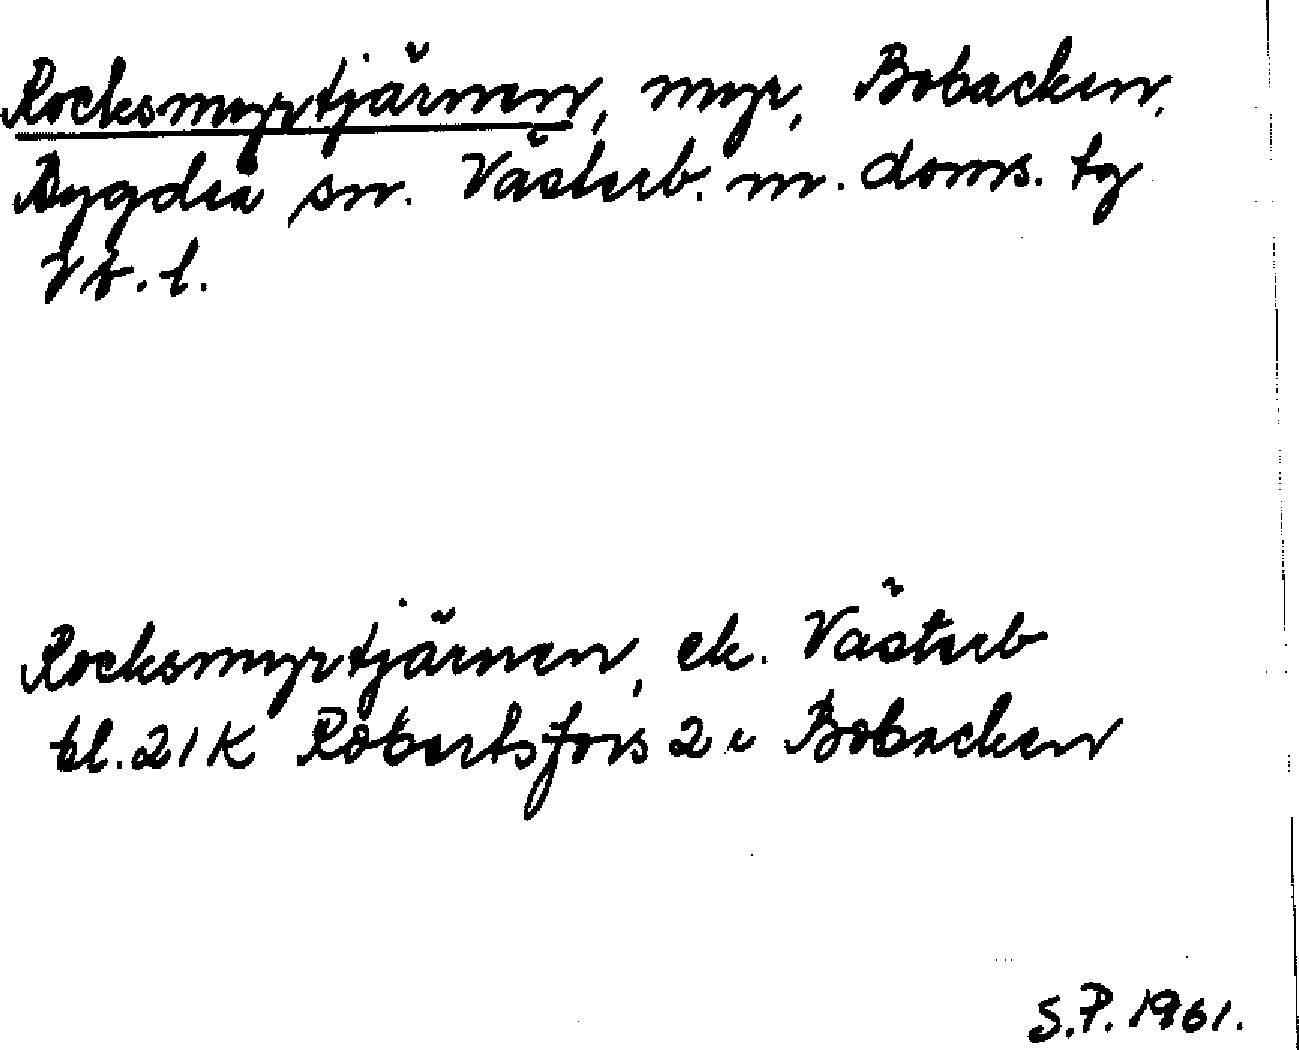 Rocksmyrtjärnen, myr, Bobacken,
Bygdeå sn. Västerb. m. doms. tg
Vb. l.
Rocksmyrtjärnen, ek. Västerb
bl. 21K Robertsfors 2 c Bobacken
S.P. 1961.